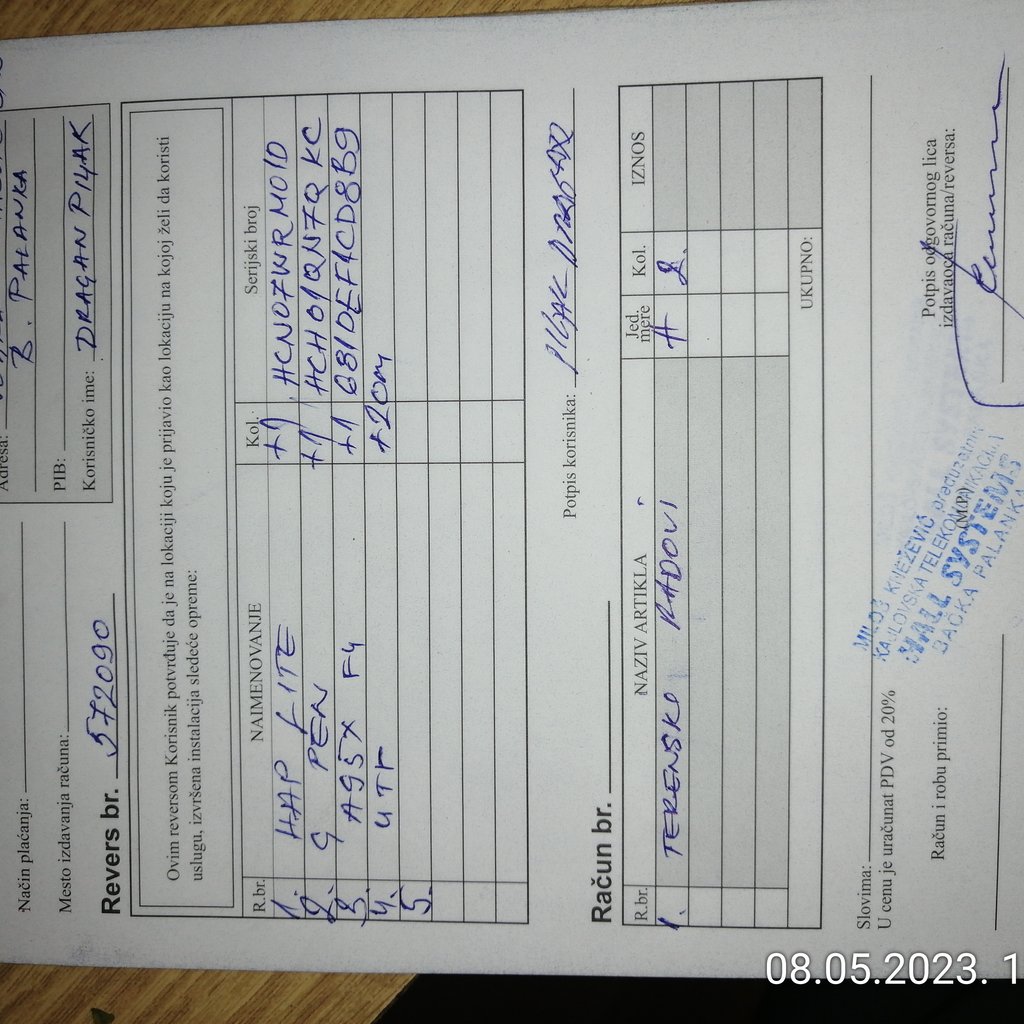 Način plaćanja:
Mesto izdavanja računa:
Adresa:
B. PALANKA
PIB:
Korisničko ime: DRAGAN PILJAK
Revers br. 572090
Ovim reversom Korisnik potvrđuje da je na lokaciji koju je prijavio kao lokaciju na kojoj želi da koristi
uslugu, izvršena instalacija sledeće opreme:
R.br. NAIMENOVANJE Kol. Serijski broj
1. HAP LITE +1 HCN07WRM01D
2. G PEN +1 HCH01QN7QKC
3. AG5X F4 +1 G81DEF1CD8B9
4. UTP +20m
5.
Potpis korisnika: PILJAK DRAGAN
Račun br.
R.br. NAZIV ARTIKLA Jed. mere Kol. IZNOS
1. TERENSKI RADOVI H 2.
UKUPNO:
Slovima:
U cenu je uračunat PDV od 20%
Račun i robu primio:
(M.P.)
Potpis odgovornog lica
izdavaoca računa/reversa:
MILOŠ KNEŽEVIĆ preduzetnik
KABLOVSKA TELEKOMUNIKACIJA
MALL SYSTEMS
BAČKA PALANKA
08.05.2023. 1